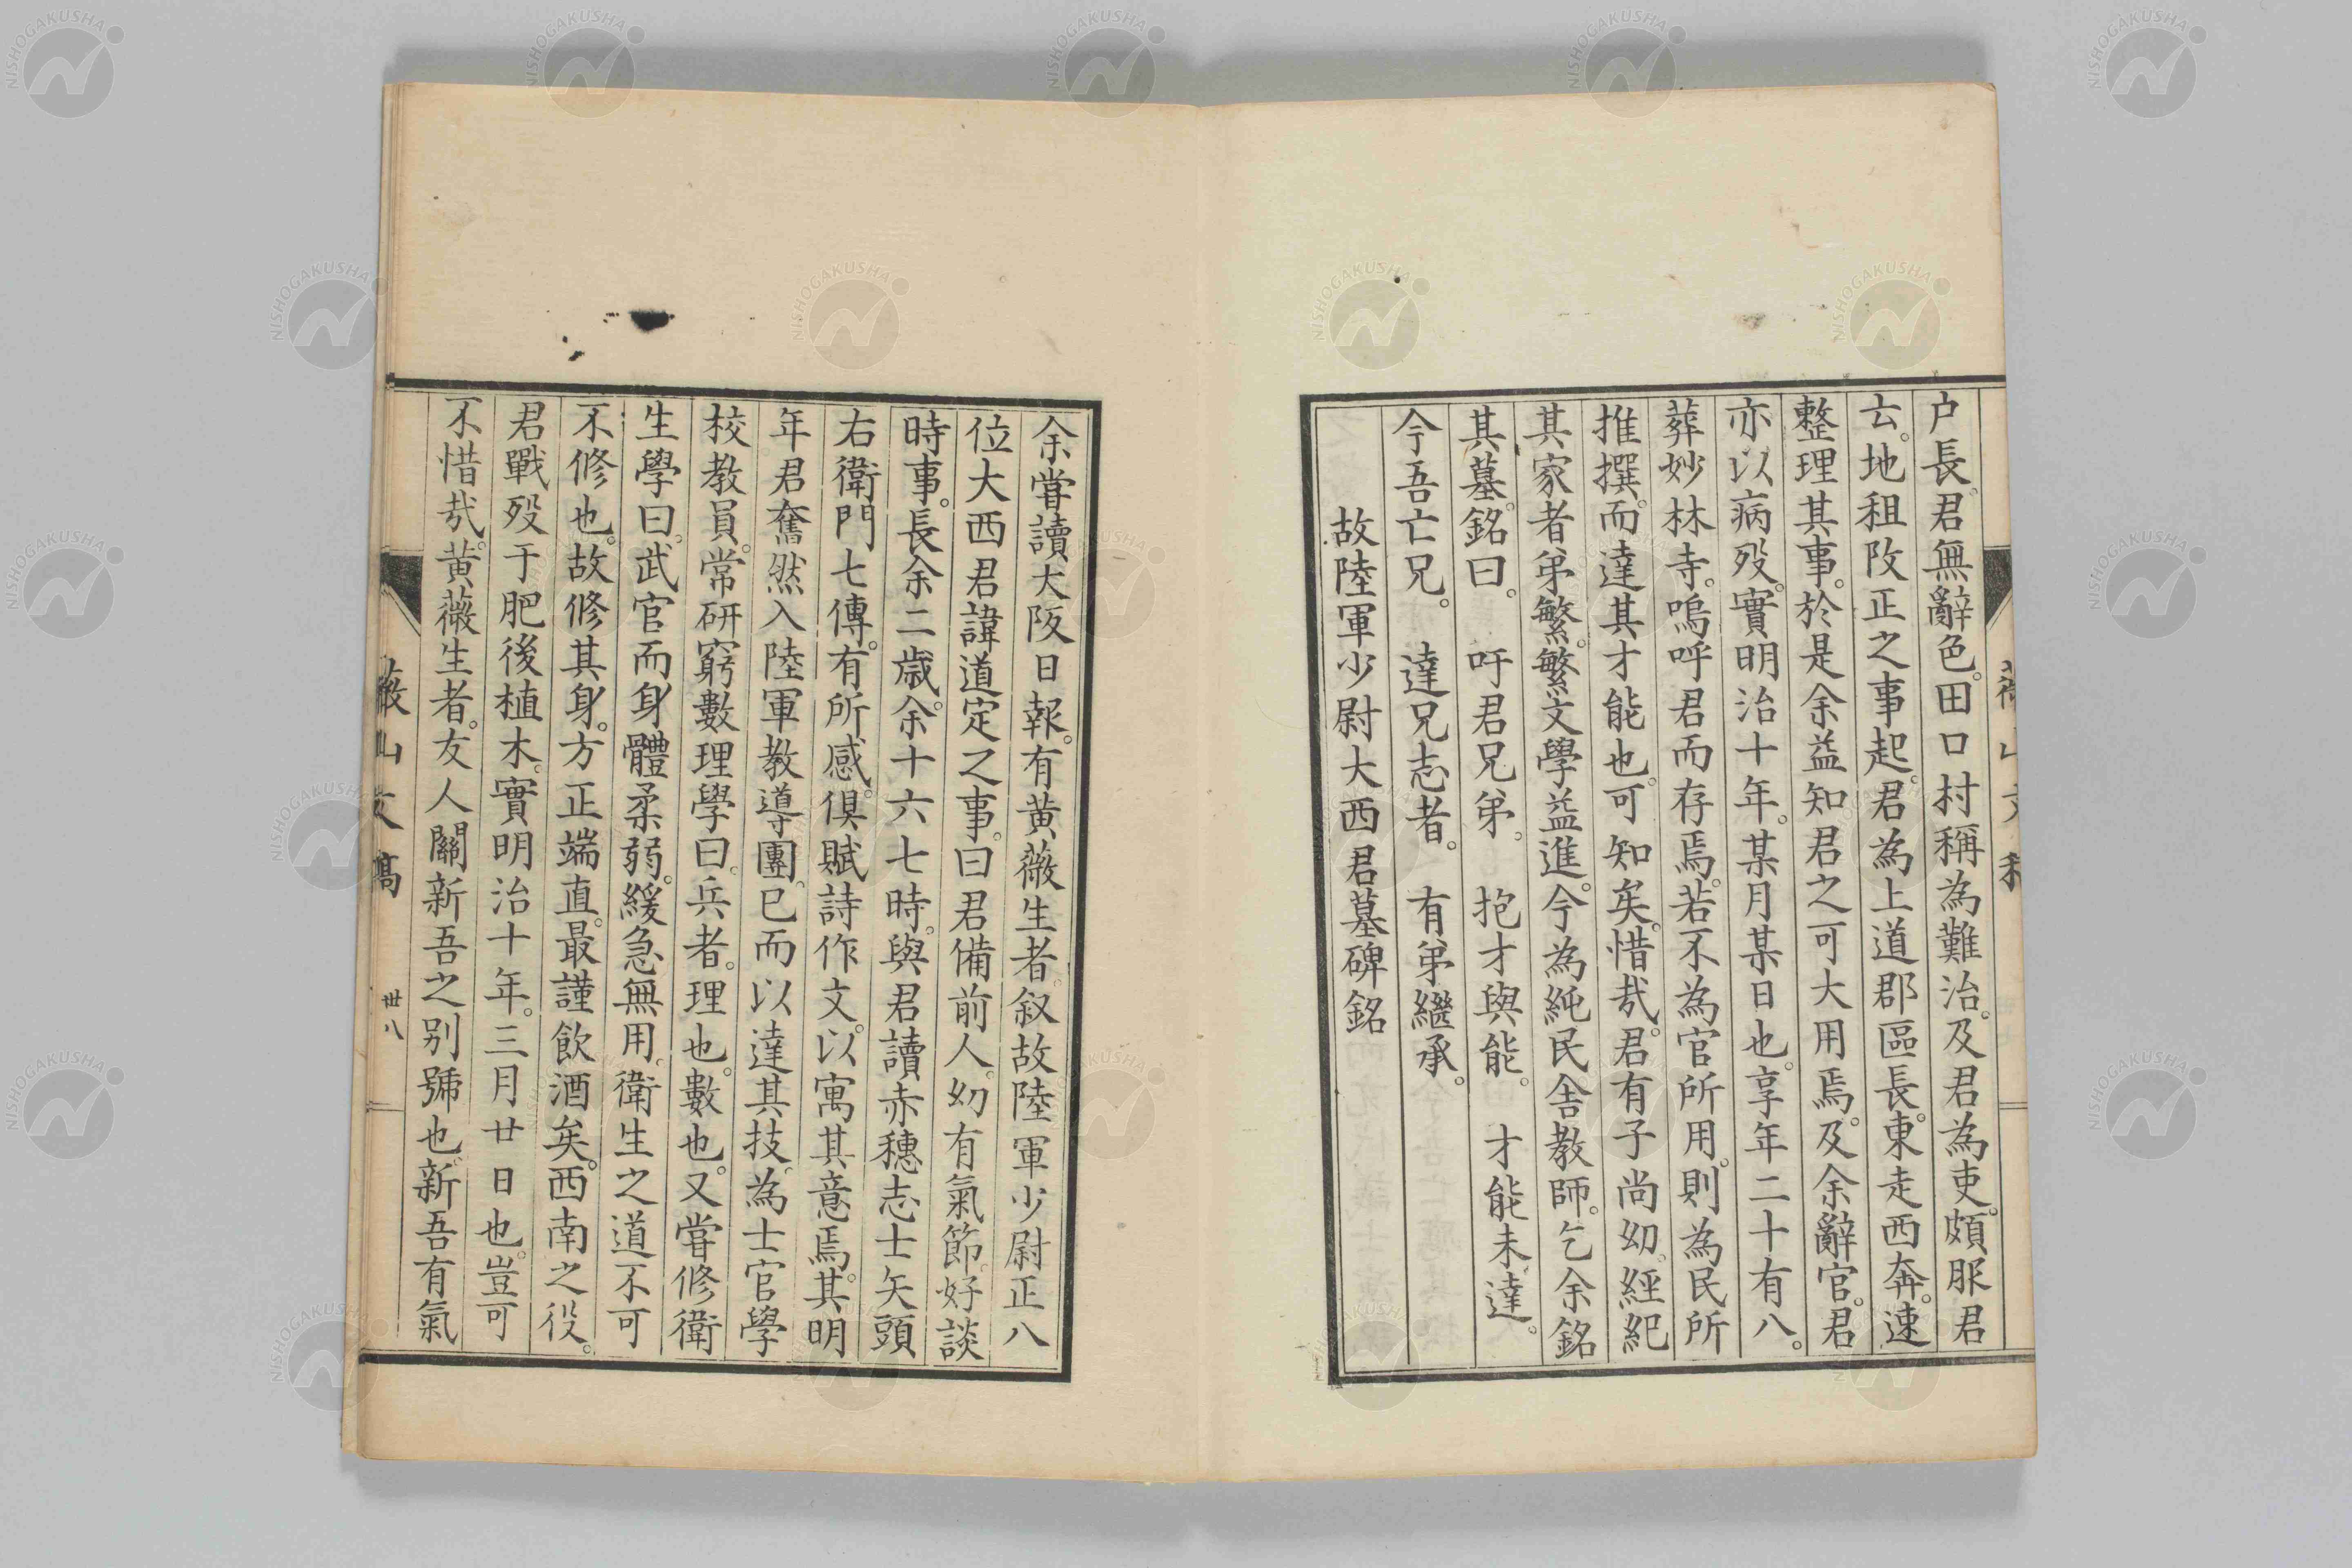 戸長。君無辭色。田口村稱為難治。及君為吏。頗服君
云。地租改正之事起。君為上道郡區長。東走西奔。速
整理其事。於是余益知君之可大用焉。及余辭官。君
亦以病歿。實明治十年。某月某日也。享年二十有八。
葬妙林寺。嗚呼君而存焉。若不為官所用。則為民所
推撰。而達其才能也。可知矣。惜哉。君有子尚幼。經紀
其家者弟繁。繁文學益進。今為純民舎教師。乞余銘
其墓。銘曰。 吁君兄弟。 抱才與能。 才能未達。
今吾亡兄。 達兄志者。 有弟繼承。
故陸軍少尉大西君墓碑銘
余嘗讀大阪日報。有黄薇生者。叙故陸軍少尉正八
位大西君諱道定之事。曰君備前人。幼有氣節。好談
時事。長余二歲。余十六七時。與君讀赤穗志士矢頭
右衛門七傳。有所感。俱賦詩作文。以寓其意焉。其明
年君奮然入陸軍教導團。已而以達其技。為士官學
校教員。常研窮數理學曰。兵者。理也。數也。又嘗修衛
生學曰。武官而身體柔弱。緩急無用。衛生之道不可
不修也。故修其身。方正端直。最謹飲酒矣。西南之役。
君戰歿于肥後植木。實明治十年。三月廿日也。豈可
不惜哉。黄薇生者。友人關新吾之别號也。新吾有氣
薇山文稿
卅八